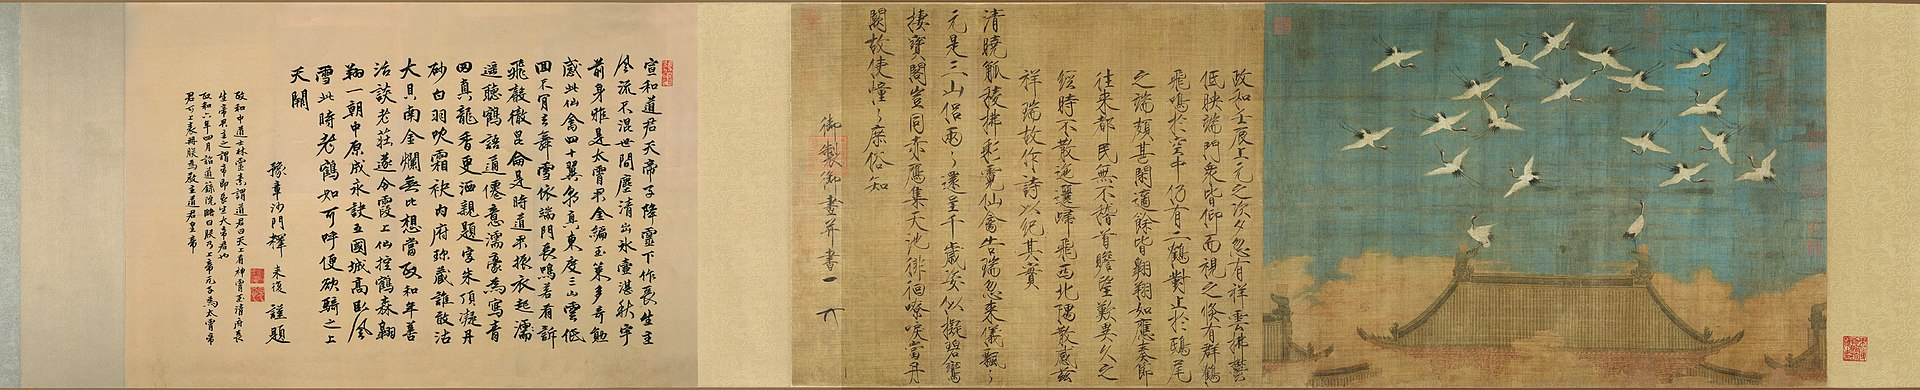 政和壬辰上元之次夕忽有祥雲拂鬱
低映端門眾皆仰而視之倏有群鶴
飛鳴於空中仍有二鶴對止於鴟尾
之端頗甚閑適餘皆翱翔如應奏節
往來都民無不稽首瞻望歎異久之
經時不散迤邐歸飛西北隅散感茲
祥瑞故作詩以紀其實
清曉觚稜拂彩霓仙禽告瑞忽來儀飄〻
元是三山侶兩〻還呈千歲姿似擬碧鸞
棲寶閣豈同赤鴈集天池徘徊嘹唳當丹
闕故使憧〻庶俗知
御製御畫并書
宣和道君天帝子降靈下作長生主
風流不混世間塵清出冰壺湛秋宇
前身雅是太霄君金編玉策多奇勳
感此仙禽四十翼真東度三山雲低
回不肯去舞雪依端門長鳴若有訴
飛聲徹昆侖是時道君振衣起
遥聽鶴語通僊意濡豪為寫青
田真龍香更洒親題字朱頂凝丹
砂白羽吹霜袂内府珍藏誰敢沽
大貝南金爛無比想當政和年善
治談老莊遂令霞上仙控鶴森翱
翔一朝中原成永訣五國城高臥風
雪此時老鶴如可呼便欲騎之上
天闕
豫章沙門釋来復謹題
政和中道士林靈素謂道君曰天上有神霄玉清府長
生帝君主之謂帝即長生大帝君也
政和六年四月詔道錄院略曰朕乃上帝元子為太霄帝
君可上表冊朕為教主道君皇帝